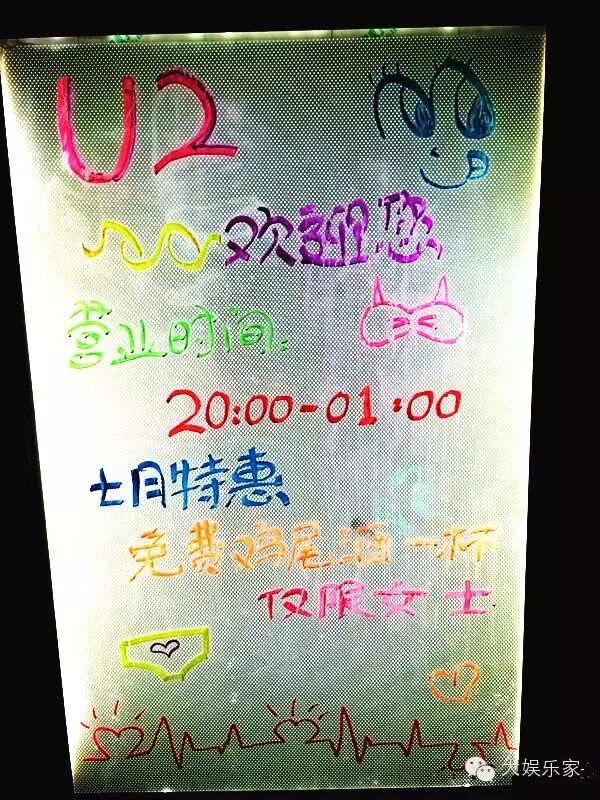 U2
欢迎您
营业时间:
20:00-01:00
七月特惠
免费鸡尾酒一杯
仅限女士
大娱乐家